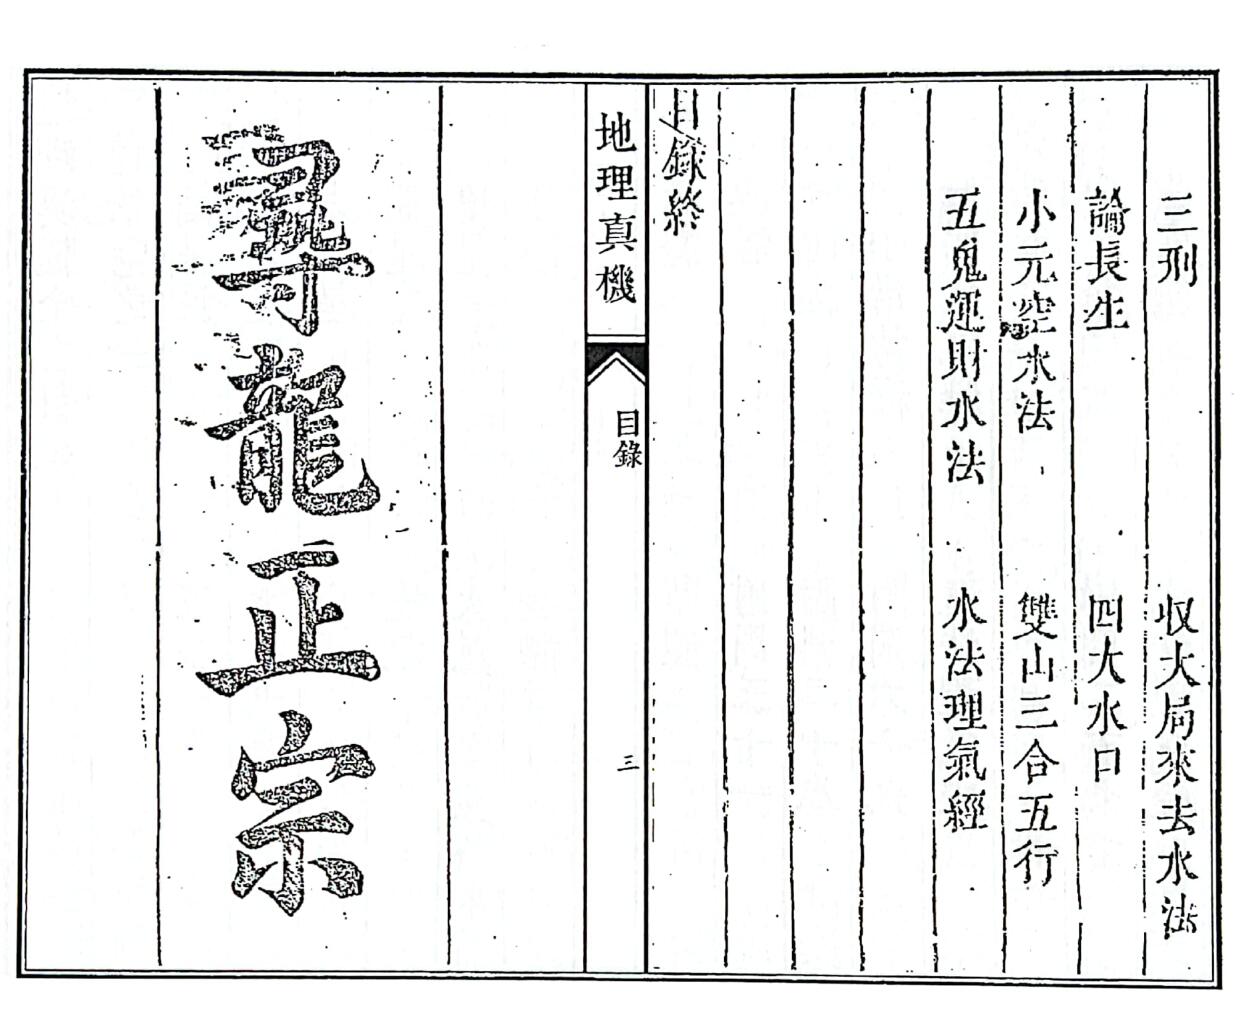 三刑　収大局來去水法
論長生　四大水口
小元空水法　雙山三合五行
五鬼運財水法　水法理氣經
目錄終
地理真機
目錄
三
尋龍正宗